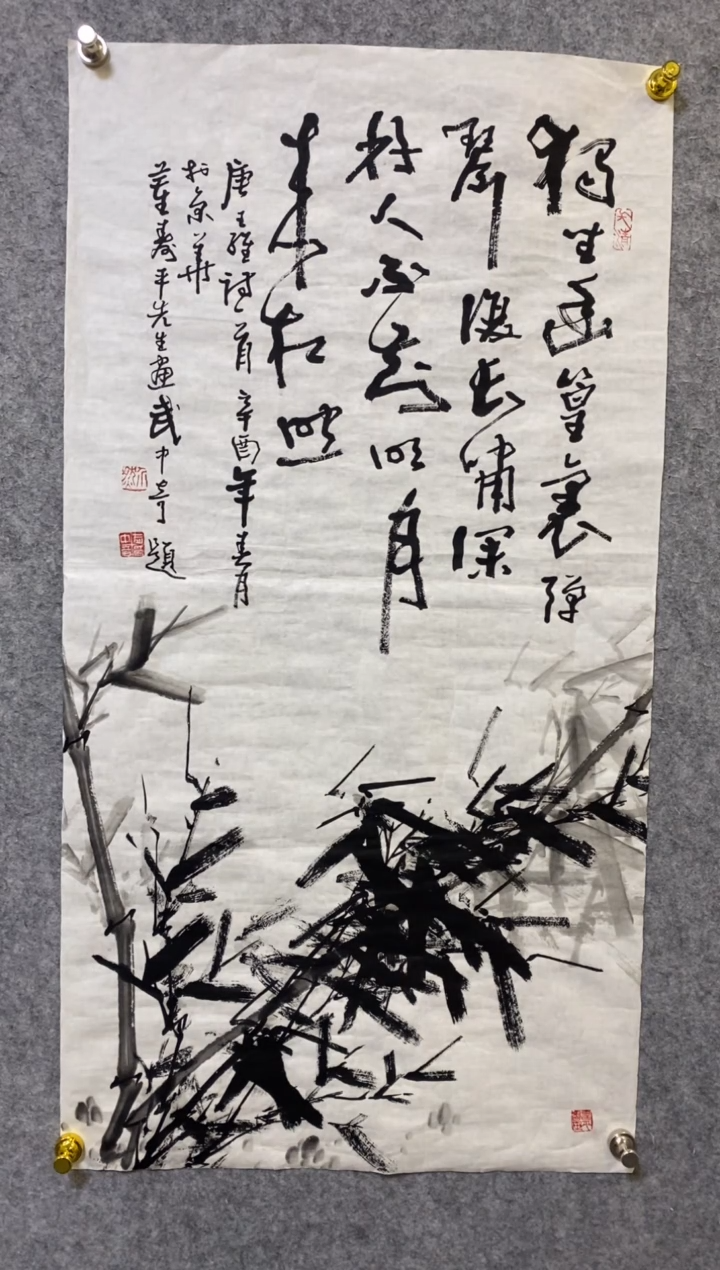 獨坐幽篁裏彈
琴復長嘯深
林人不知明月
来相照
唐王維詩一首 辛酉年春月
於京華
董壽平先生畫武中奇題